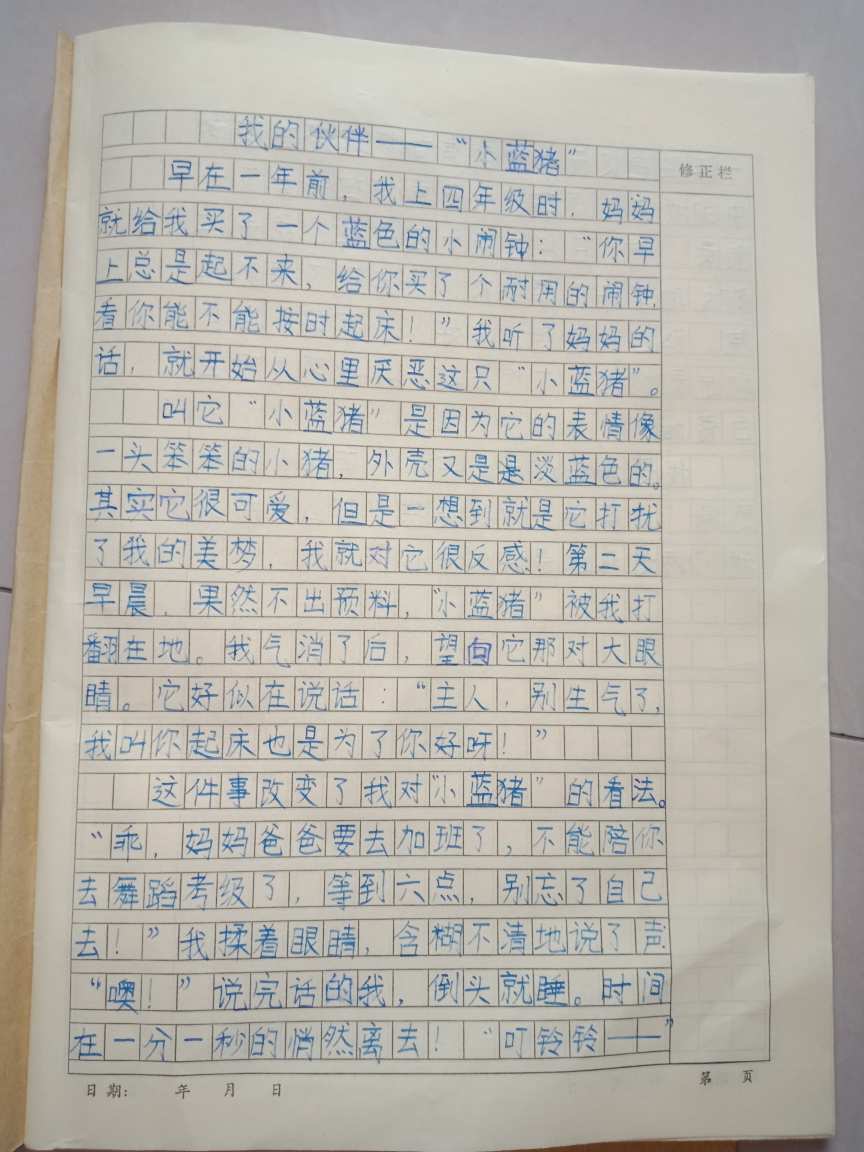 我的伙伴——“小蓝猪”
修正栏
早在一年前，我上四年级时，妈妈
就给我买了一个蓝色的小闹钟：“你早
上总是起不来，给你买了个耐用的闹钟，
看你能不能按时起床！”我听了妈妈的
话，就开始从心里厌恶这只“小蓝猪”。
叫它“小蓝猪”是因为它的表情像
一头笨笨的小猪，外壳又是是淡蓝色的。
其实它很可爱，但是一想到就是它打扰
了我的美梦，我就对它很反感！第二天
早晨，果然不出预料，“小蓝猪”被我打
翻在地。我气消了后，望向它那对大眼
睛。它好似在说话：“主人，别生气了，
我叫你起床也是为了你好呀！”
这件事改变了我对“小蓝猪”的看法。
“乖，妈妈爸爸要去加班了，不能陪你
去舞蹈考级了，等到六点，别忘了自己
去！”我揉着眼睛，含糊不清地说了声
“噢！”说完话的我，倒头就睡。时间
在一分一秒的悄然离去！“叮铃铃——”
日期： 年 月 日
第 页